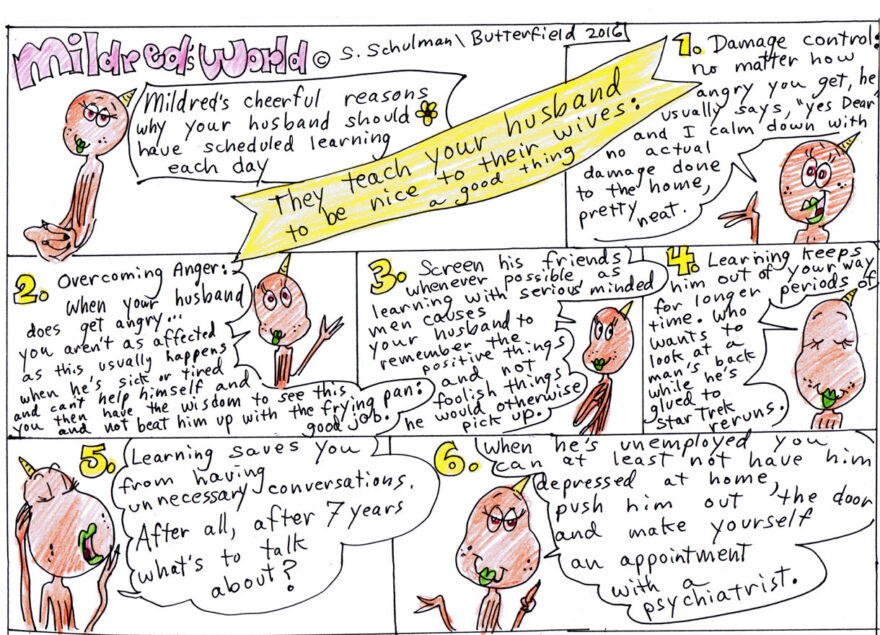 Mildred's World © S. Schulman\Butterfield 2016
Mildred's cheerful reasons
why your husband should
have scheduled learning
each day
They teach your husband
to be nice to their wives:
a good thing
1. Damage control:
no matter how
angry you get, he
usually says, "yes Dear"
and I calm down with
no actual
damage done
to the home,
pretty
neat.
2. Overcoming Anger:
When your husband
does get angry...
you aren't as affected
as this usually happens
when he's sick or tired
and can't help himself and
you then have the wisdom to see this
and not beat him up with the frying pan:
good job.
3. Screen his friends
whenever possible as
learning with serious minded
men causes
your husband to
remember the
positive things
and not
foolish things
he would otherwise
pick up.
4. Learning keeps
him out of your way
for longer periods of
time. Who
wants to
look at a
man's back
while he's
glued to
Star Trek
reruns.
5. Learning saves you
from having
unnecessary conversations.
After all, after 7 years
what's to talk
about?
6. When he's unemployed you
can at least not have him
depressed at home,
push him out the door
and make yourself
an appointment
with a
psychiatrist.